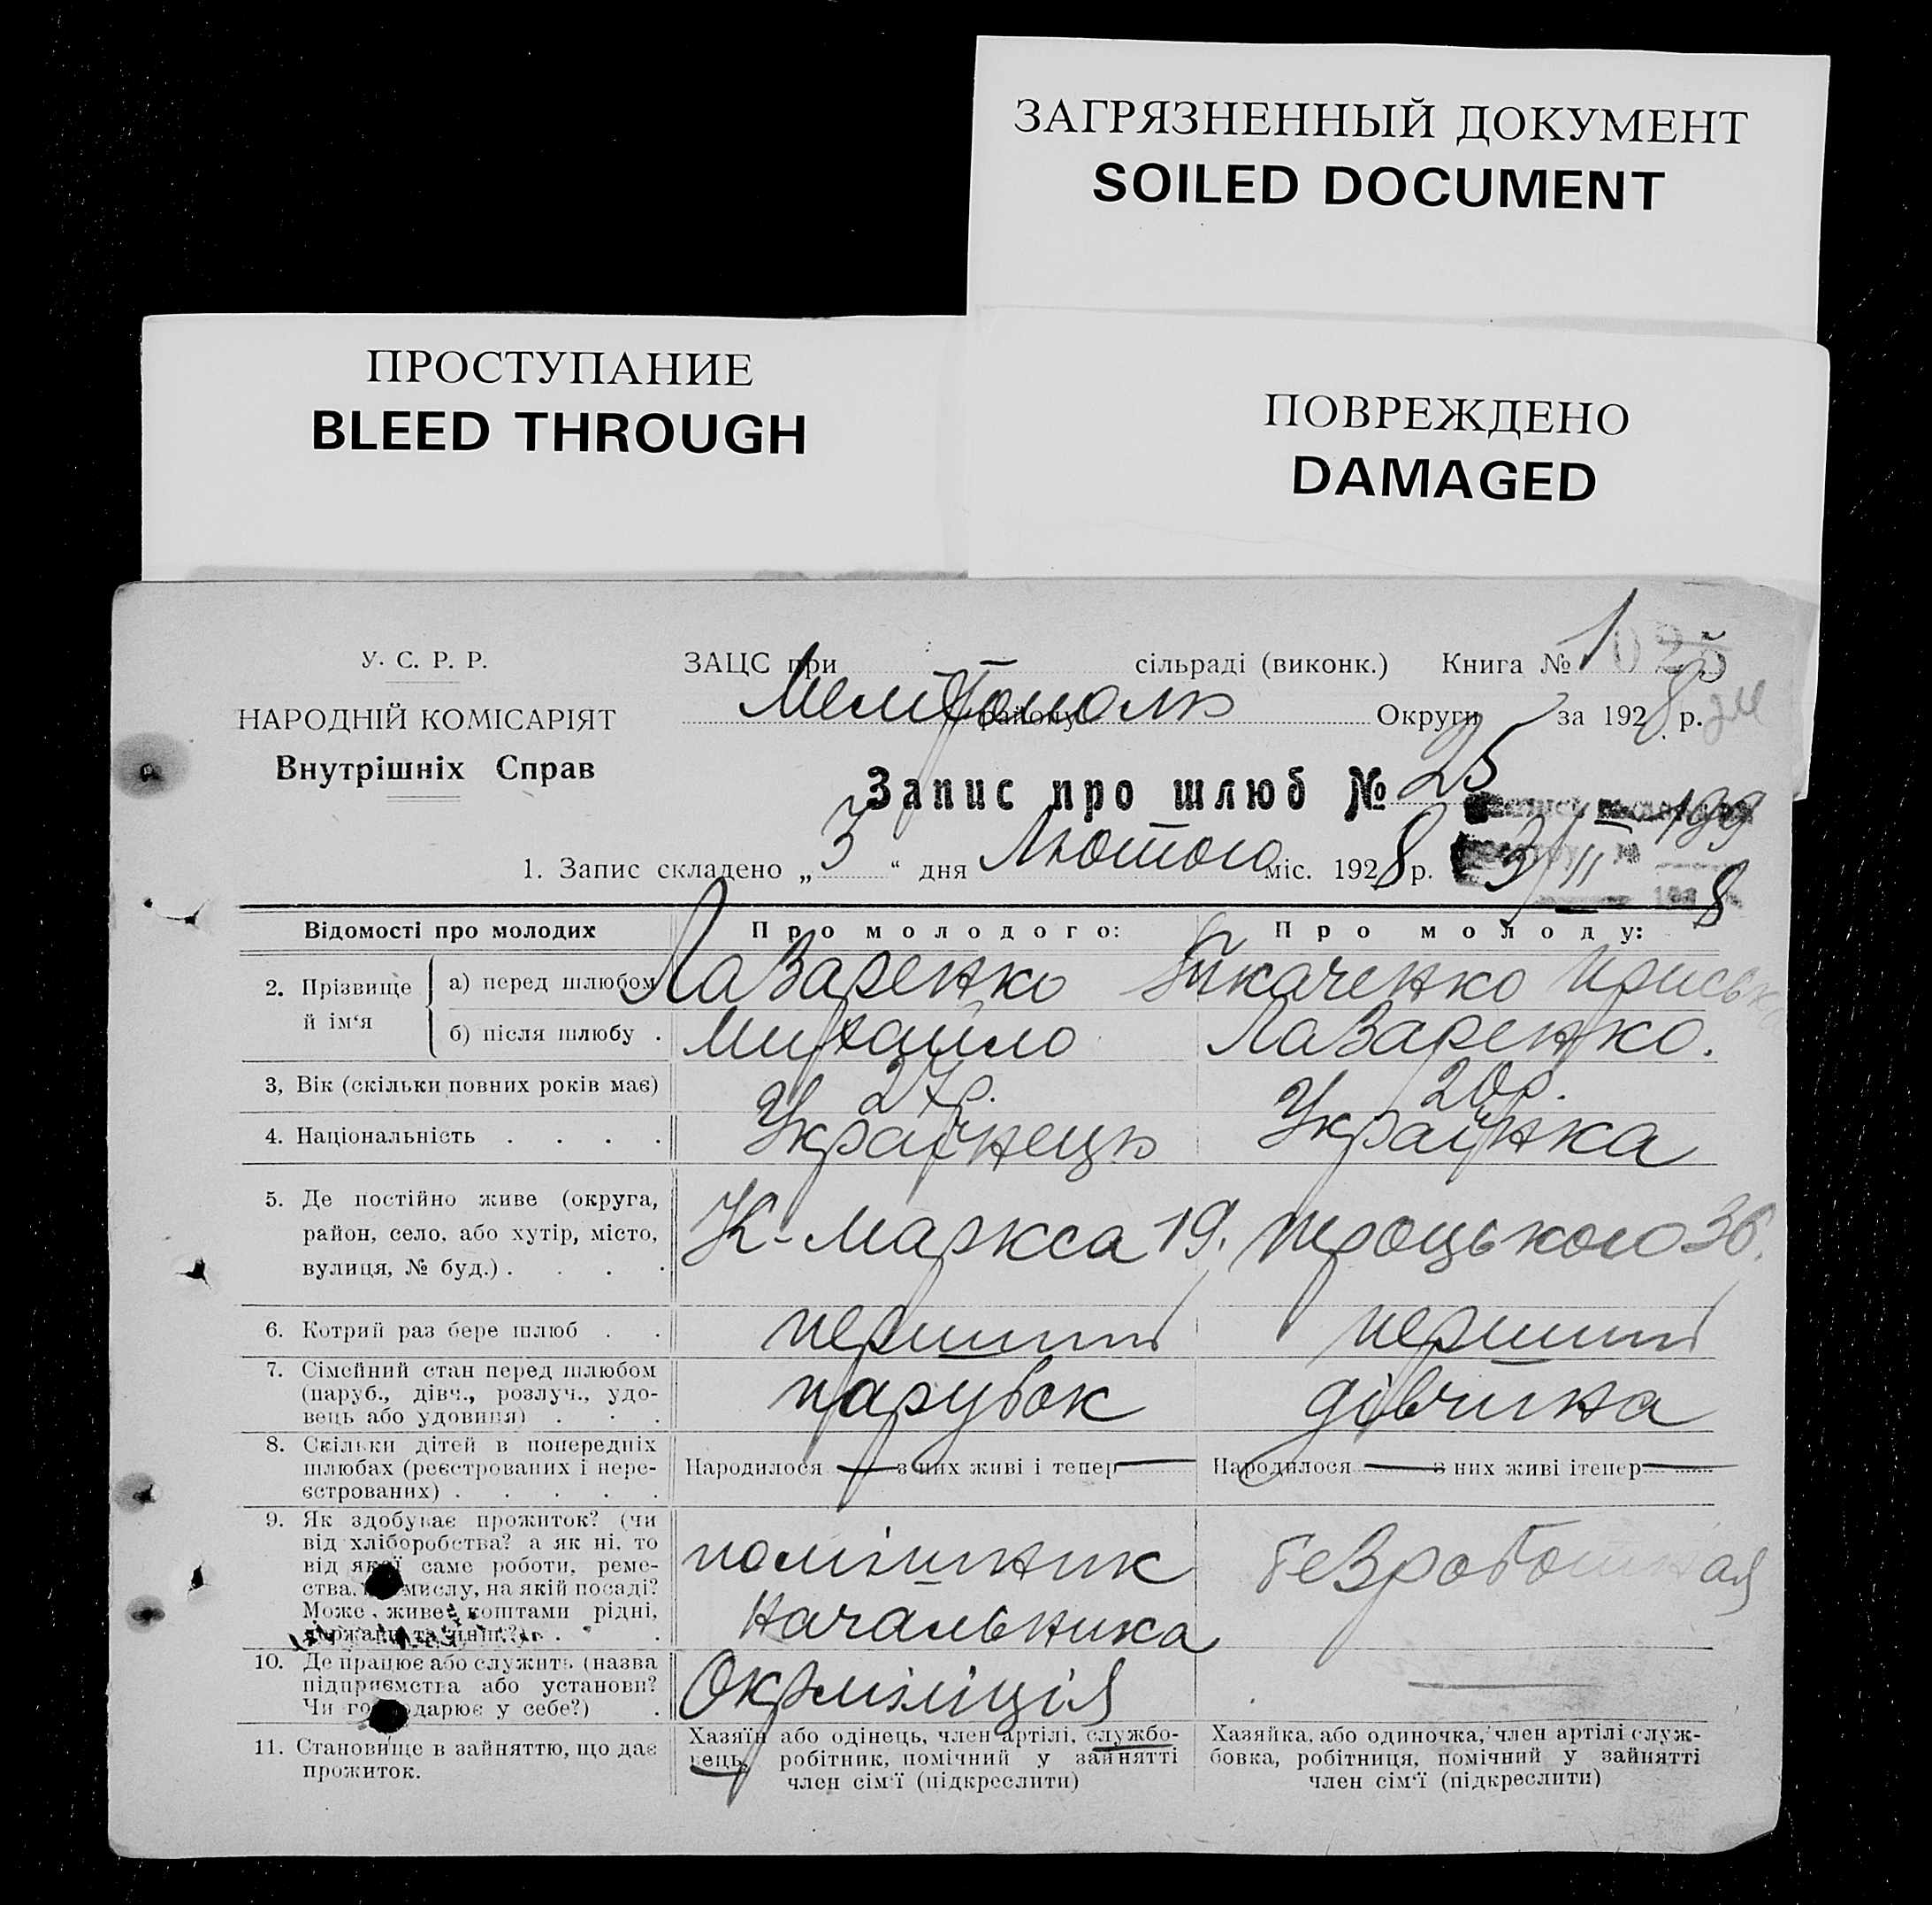 ЗАГРЯЗНЕННЫЙ ДОКУМЕНТ
SOILED DOCUMENT
ПРОСТУПАНИЕ
BLEED THROUGH
ПОВРЕЖДЕНО
DAMAGED
У. С. Р. Р.
НАРОДНІЙ КОМІСАРІЯТ
Внутрішніх Справ
ЗАЦС при сільраді (виконк.) Книга № 1
Мелітополь району Округи за 1928 р.
Запис про шлюб № 25
1. Запис складено „3“ дня Лютого міс. 1928 р.
Відомості про молодих Про молодого: Про молоду:
2. Прізвище й ім‘я
а) перед шлюбом Лазаренко Ткаченко
б) після шлюбу . Михайло Лазаренко.
3, Вік (скільки повних років має) 27р. 20р.
4. Національність . . . . Українець Українка
5. Де постійно живе (округа,
район, село, або хутір, місто,
вулиця, № буд.) . . . . К-Маркса 19. Троцького 36.
6. Котрий раз бере шлюб . . перший перший
7. Сімейний стан перед шлюбом
(паруб., дівч., розлуч., удо-
вець або удовиця) . . . парубок дівчина
8. Скільки дітей в попередніх
шлюбах (реєстрованих і нере-
єстрованих) . . . . .
Народилося — з них живі і тепер —
Народилося — з них живі ітепер —
9. Як здобуває прожиток? (чи
від хліборобства? а як ні, то
від якої саме роботи, реме-
ства, мислу, на якій посаді?
Може живе коштами рідні,
помішник
начальника
безработная
10. Де працює або служить (назва
підприємства або установи?
Чи господарює у себе?) .
Окрміліція —
11. Становище в зайняттю, що дає
прожиток.
Хазяїн або одінець, член артілі, службо-
вець, робітник, помічний у зайнятті
член сім‘ї (підкреслити)
Хазяйка, або одиночка, член артілі служ-
бовка, робітниця, помічний у зайнятті
член сім‘ї (підкреслити)